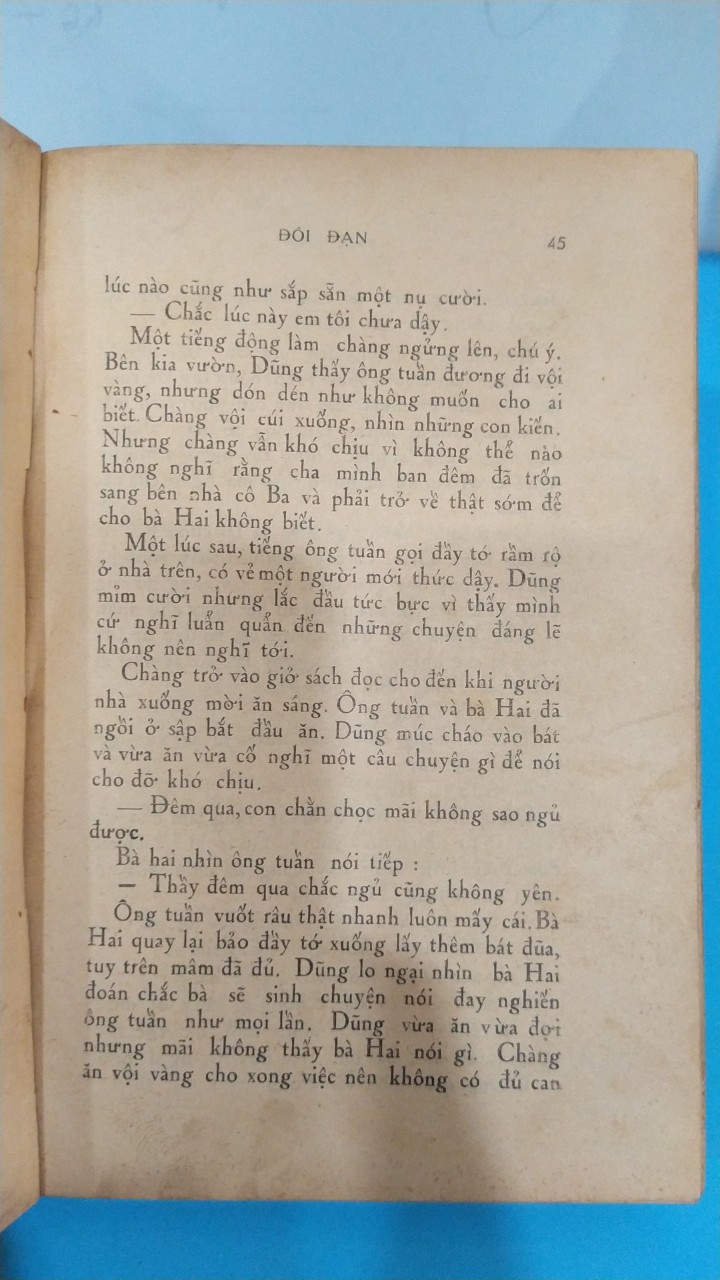 ĐÔI ĐẠN 45
lúc nào cũng như sắp sẵn một nụ cười.
— Chắc lúc này em tôi chưa dậy.
Một tiếng động làm chàng ngửng lên, chú ý.
Bên kia vườn, Dũng thấy ông tuần đương đi vội
vàng, nhưng dón dén như không muốn cho ai
biết. Chàng vội cúi xuống, nhìn những con kiến.
Nhưng chàng vẫn khó chịu vì không thể nào
không nghĩ rằng cha mình ban đêm đã trốn
sang bên nhà cô Ba và phải trở về thật sớm để
cho bà Hai không biết.
Một lúc sau, tiếng ông tuần gọi đầy tớ rầm rộ
ở nhà trên, có vẻ một người mới thức dậy. Dũng
mỉm cười nhưng lắc đầu tức bực vì thấy mình
cứ nghĩ luẩn quẩn đến những chuyện đáng lẽ
không nên nghĩ tới.
Chàng trở vào giở sách đọc cho đến khi người
nhà xuống mời ăn sáng. Ông tuần và bà Hai đã
ngồi ở sập bắt đầu ăn. Dũng múc cháo vào bát
và vừa ăn vừa cố nghĩ một câu chuyện gì để nói
cho đỡ khó chịu.
— Đêm qua, con chằn chọc mãi không sao ngủ
được.
Bà hai nhìn ông tuần nói tiếp :
— Thầy đêm qua chắc ngủ cũng không yên.
Ông tuần vuốt râu thật nhanh luôn mấy cái. Bà
Hai quay lại bảo đầy tớ xuống lấy thêm bát đũa,
tuy trên mâm đã đủ. Dũng lo ngại nhìn bà Hai
đoán chắc bà sẽ sinh chuyện nói đay nghiến
ông tuần như mọi lần. Dũng vừa ăn vừa đợi
nhưng mãi không thấy bà Hai nói gì. Chàng
ăn vội vàng cho xong việc nên không có đủ can